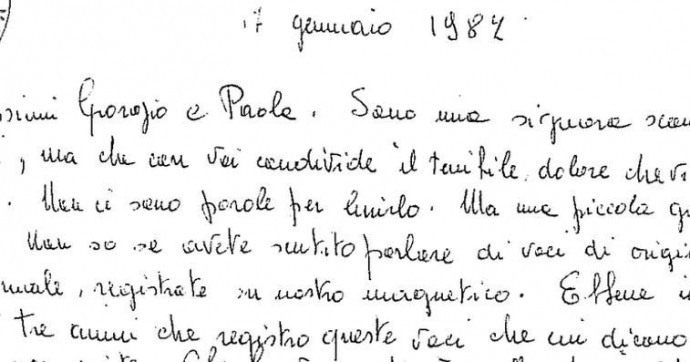 17 gennaio 1984
ssimi Giorgio e Paola. Sono una signora scon
, ma che con voi condivide il terribile dolore che vi
. Non ci sono parole per lenirlo. Ma una piccola
Non so se avete sentito parlare di voci di origi
male, registrate su nastro magnetico. Ebbene
tre anni che registro queste voci che mi dicono